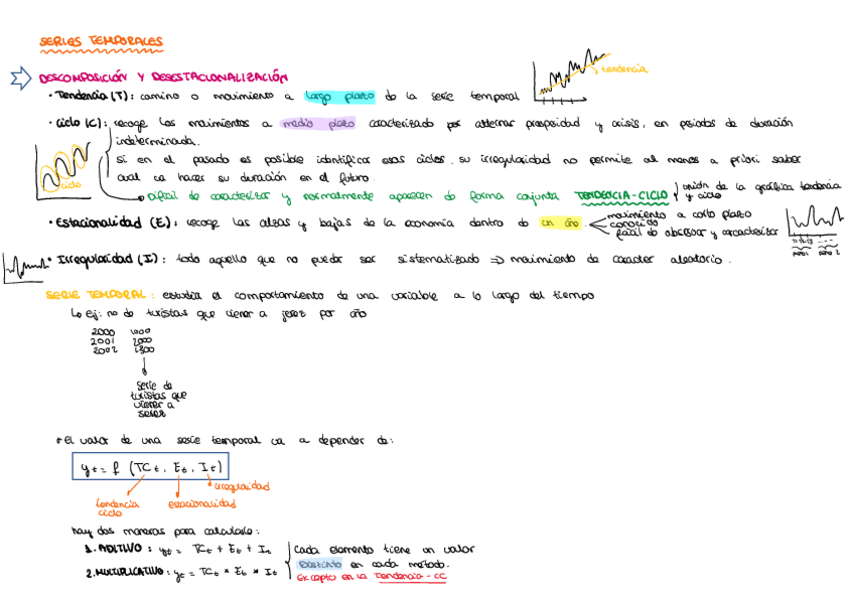 SERIES TEMPORALES
DESCOMPOSICIÓN Y DESESTACIONALIZACIÓN
• Tendencia (T): camino o movimiento a largo plazo de la serie temporal
tendencia
• Ciclo (C): recoge los movimientos a medio plazo caracterizado por alternar prosperidad y crisis, en periodos de duración
indeterminada.
Si en el pasado es posible identificar esos ciclos. su irregularidad no permite al menos a priori saber
cual va hacer su duración en el futuro.
ciclo
Dificil de caracterizar y normalmente aparecen de forma conjunta TENDENCIA-CICLO
unión de la gráfica tendencia
y ciclo
• Estacionalidad (E): recoge las alzas y bajas de la economía dentro de un año.
movimiento a corto plazo
conocido
facil de observar y caracterizar
• Irregularidad (I): todo aquello que no puede ser sistematizado => movimiento de caracter aleatorio.
SERIE TEMPORAL: estudia el comportamiento de una variable a lo largo del tiempo
Lo ej: no de turistas que vienen a jerez por año
2000 1000
2001 2000
2002 1300
Serie de
turistas que
vienen a
Jerez
* el valor de una serie temporal va a depender de:
yt = f (TCt, Et, It)
irregularidad
tendencia
ciclo
estacionalidad
hay dos maneras para calcularlo:
1. ADITIVO: yt = TCt + Et + It
2. MULTIPLICATIVO: yt = TCt * Et * It
Cada elemento tiene un valor
distinto en cada método.
Excepto en la Tendencia-CC